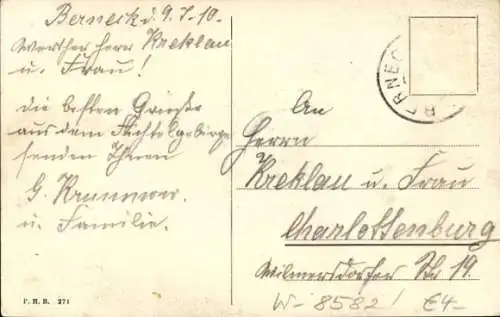 Berneck d. 9.7.10.
Werther Herr Kreklau
u. Frau!
die besten Grüße
aus dem Fichtelgebirge
senden Ihnen
G. Krummow
u. Familie.
P. H. B. 271
BERNEC
An
Herrn
Kreklau u. Frau
Charlottenburg
Wilmersdorfer Str 19.
W-8582/ €4-